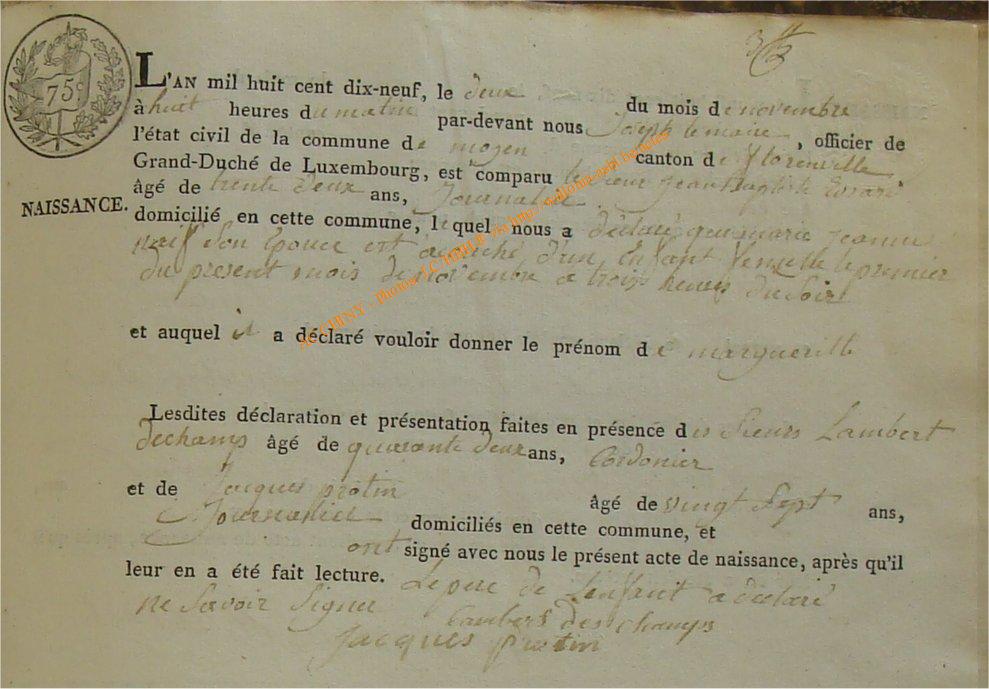 75c
L'AN mil huit cent dix-neuf, le deux du mois de novembre
à huit heures du matin par-devant nous Joseph lemaire, officier de
l'état civil de la commune de moyen canton de florenville
Grand-Duché de Luxembourg, est comparu le sieur jean Baptiste
âgé de trente deux ans, Journalier
NAISSANCE.
domicilié en cette commune, lequel nous a déclaré que marie jeanne
naif son Epouce est acouché d'un Enfant femelle le premier
du present mois de Novembre a trois heures du Soir
et auquel il a déclaré vouloir donner le prénom de margueritte
Lesdites déclaration et présentation faites en présence des Sieurs Lambert
dechamp âgé de quarante deux ans, Cordonier
et de Jacques protin âgé de vingt Sept ans,
Journalier domiciliés en cette commune, et
ont signé avec nous le présent acte de naissance, après qu'il
leur en a été fait lecture. Le pere de l'enfant a declaré
ne Savoir Signer
Lambert des champs
Jacques protin